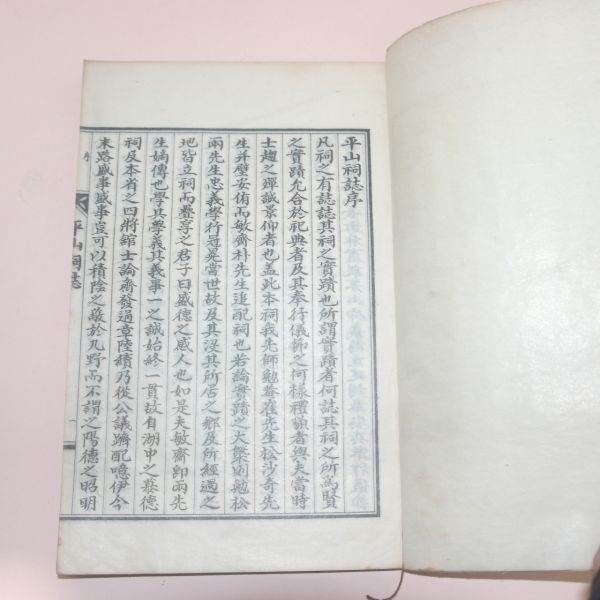 平山祠誌序
凡祠之有誌誌其祠之實蹟也所謂實蹟者何誌其祠之所高賢
之實蹟允合於祀典者及其奉行儀節之何樣禮貌者與夫當時
士趨之殫誠景仰者也盖此本祠我先師勉菴崔先生松沙奇先
生并壁妥侑而敏齋朴先生追配祠也若論實蹟之大槩則勉松
兩先生忠義學行冠冕當世故及其沒其所居之鄉及所經過之
地皆立祠而疊享之君子曰盛德之感人也如是夫敏齋卽兩先
生嫡傳也學其學義其義事一之誠始終一貫故自湖中之莪德
祠及本省之四將舘士論齊發通章陸續乃從公議躋配噫伊今
末路盛事盛事豈可以積陰之凝於九野而不謂之陽德之昭明
平山祠誌
序
一